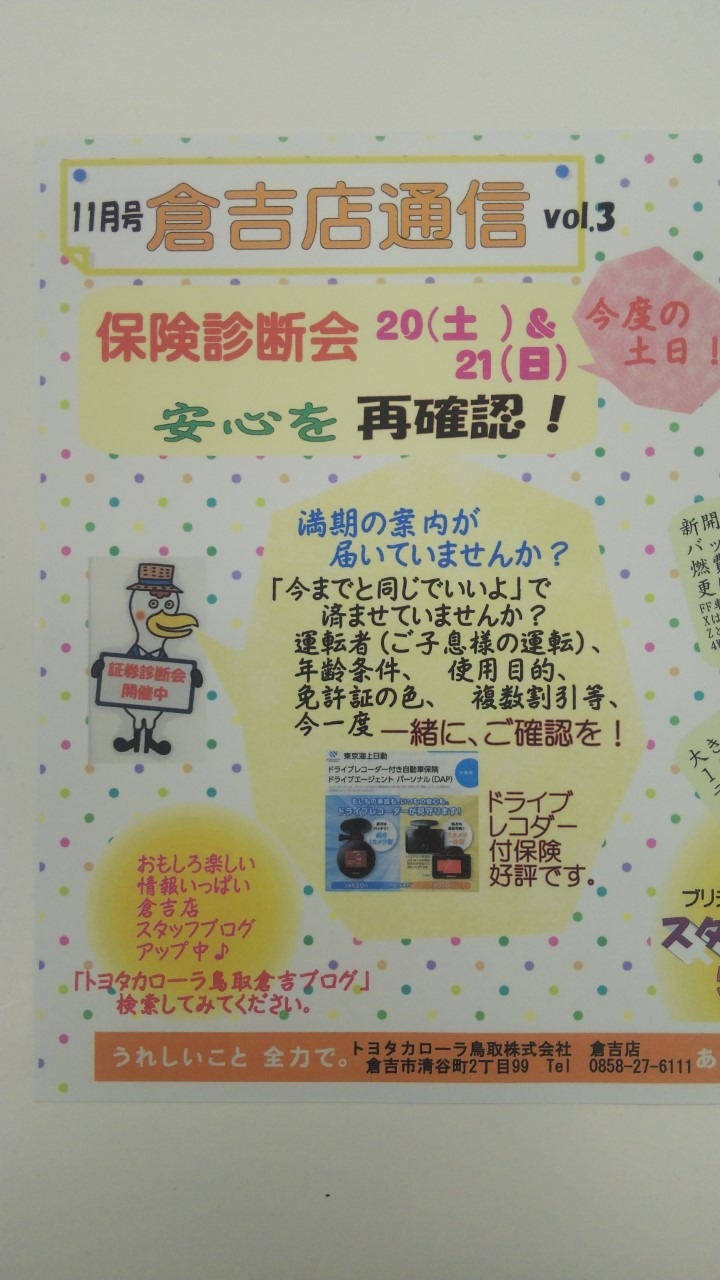 11月号 倉吉店通信 vol.3
保険診断会 20(土 )&
21(日)
今度の
土日!
安心を 再確認!
満期の案内が
届いていませんか?
「今までと同じでいいよ」で
済ませていませんか?
運転者(ご子息様の運転)、
年齢条件、 使用目的、
免許証の色、 複数割引等、
今一度 一緒に、ご確認を!
証券診断会
開催中
東京海上日動
ドライブレコーダー付き自動車保険
ドライブエージェント パーソナル(DAP)
もしもの事故も、いつもの安心も、
ドライブレコーダーが見守ります!
ドライブ
レコダー
付保険
好評です。
おもしろ楽しい
情報いっぱい
倉吉店
スタッフブログ
アップ中♪
「トヨタカローラ鳥取倉吉ブログ」
検索してみてください。
新開
バッ
燃費
更に
FF車
Xは
Zと
大き
ブリ
スタ
うれしいこと 全力で。 トヨタカローラ鳥取株式会社 倉吉店
倉吉市清谷町2丁目99 Tel 0858-27-6111 あ